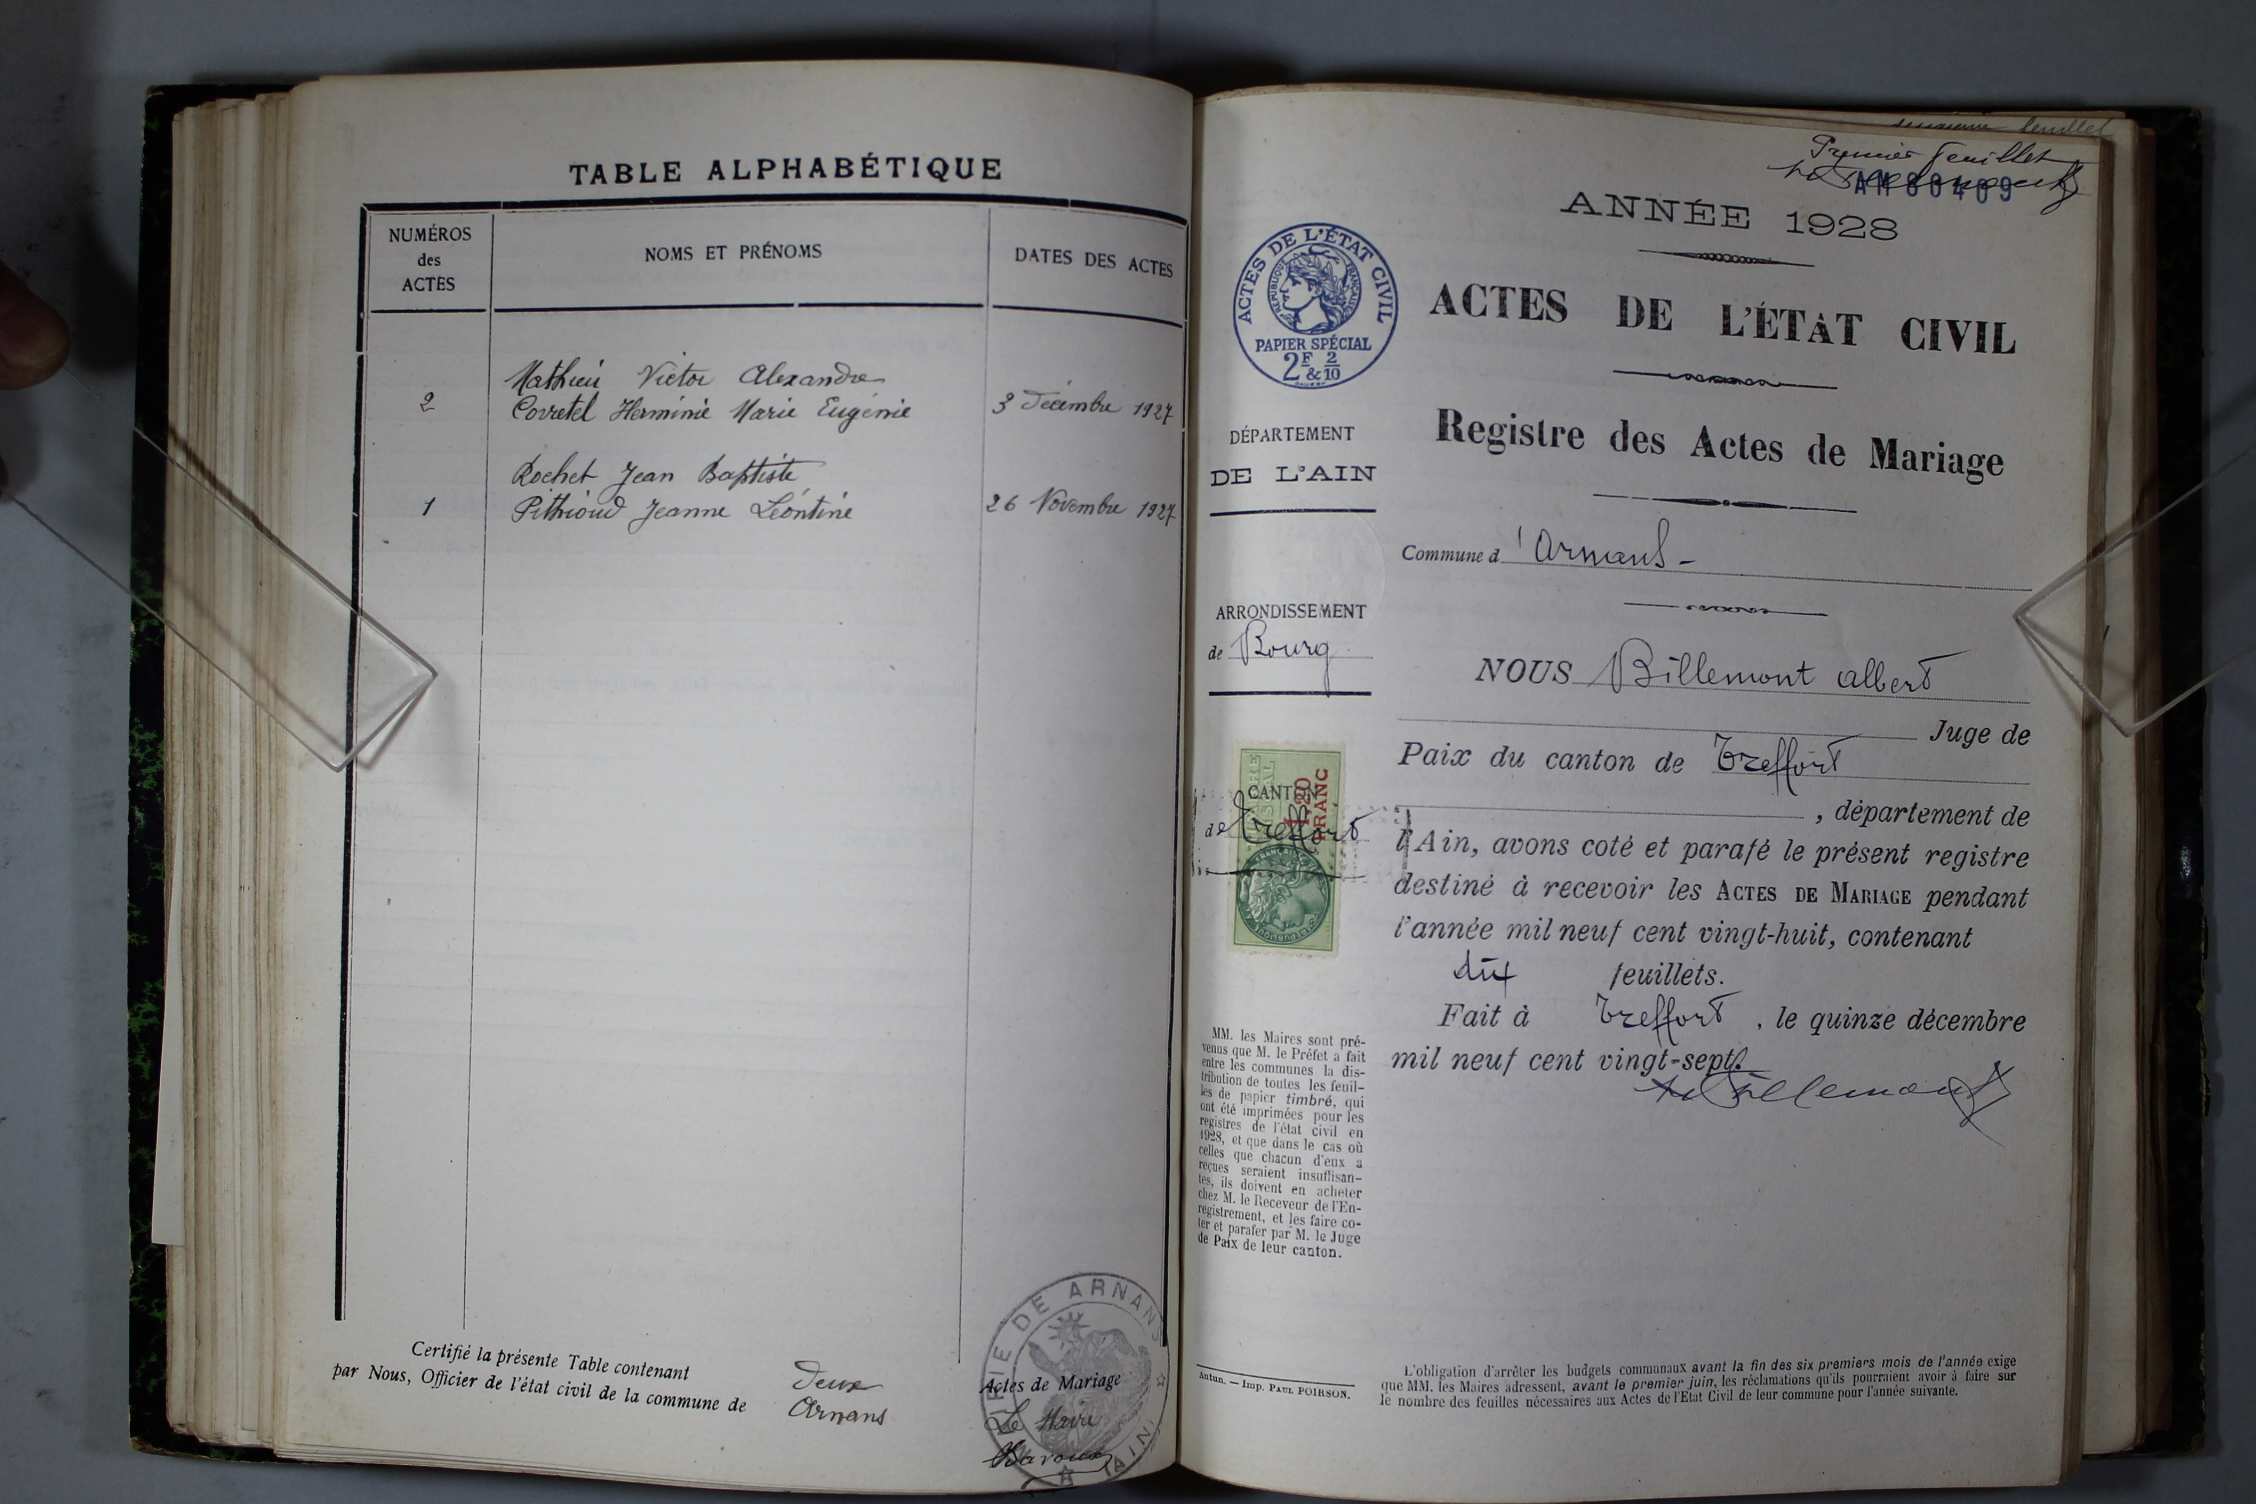 TABLE ALPHABÉTIQUE
NUMÉROS
des
ACTES
NOMS ET PRÉNOMS
DATES DES ACTES
Mathieu Victor Alexandre
2 Covretel Herminie Marie Eugénie 3 Décembre 1927
Rochet Jean Baptiste
1 Pithioud Jeanne Léontine 26 Novembre 1927
Certifié la présente Table contenant deux Actes de Mariage
par Nous, Officier de l'état civil de la commune de Arnans
Le Maire
MAIRIE DE ARNANS
(AIN)
feuillet
Premier feuillet
ANNÉE 1928
ACTES DE L'ÉTAT CIVIL
RÉPUBLIQUE FRANÇAISE
PAPIER SPÉCIAL
2F & 2/10
ACTES DE L'ÉTAT CIVIL
Registre des Actes de Mariage
DÉPARTEMENT
DE L'AIN
Commune d'Arnans
ARRONDISSEMENT
de Bourg
CANTON
de Treffort
1,20
FRANC
NOUS Billemont Albert
Juge de
Paix du canton de Treffort
, département de
l'Ain, avons coté et parafé le présent registre
destiné à recevoir les ACTES DE MARIAGE pendant
l'année mil neuf cent vingt-huit, contenant
dix feuillets.
Fait à Treffort, le quinze décembre
mil neuf cent vingt-sept.
Billemont
MM. les Maires sont pré-
venus que M. le Préfet a fait
entre les communes la dis-
tribution de toutes les feuil-
les de papier timbré, qui
ont été imprimées pour les
registres de l'état civil en
1928, et que dans le cas où
celles que chacun d'eux a
reçues seraient insuffisan-
tes, ils doivent en acheter
chez M. le Receveur de l'En-
registrement, et les faire co-
ter et parafer par M. le Juge
de Paix de leur canton.
Autun. — Imp. PAUL POIRSON.
L'obligation d'arrêter les budgets communaux avant la fin des six premiers mois de l'année exige
que MM. les Maires adressent, avant le premier juin, les réclamations qu'ils pourraient avoir à faire sur
le nombre des feuilles nécessaires aux Actes de l'Etat Civil de leur commune pour l'année suivante.